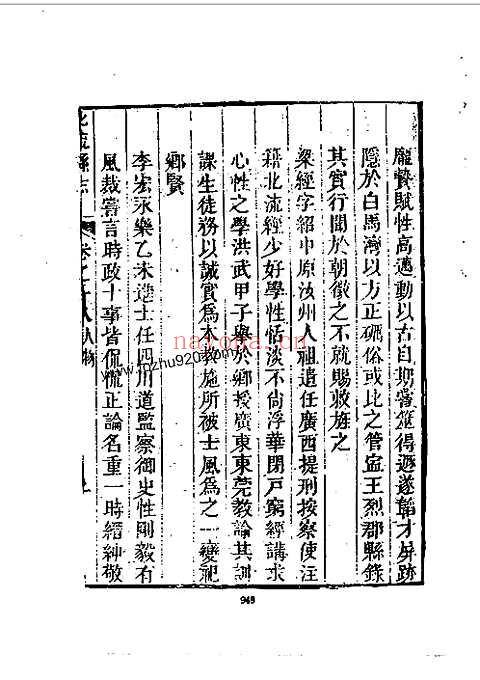 龐贄賦性高邁動以古自期嘗筮得遯遂韜才屏跡
隱於白馬灣以方正礪俗或比之管寧王烈郡縣錄
其實行聞於朝徵之不就賜敕旌之
梁經字紹中原汝州人祖遺任廣西提刑按察使注
籍北流經少好學性恬淡不尚浮華閉戸窮經講求
心性之學洪武甲子舉於鄉授廣東東莞教諭其訓
課生徒務以誠實為本教施所被士風為之一變祀
鄉賢
李宏永樂乙未進士任四川道監察御史性剛毅有
風裁嘗言時政十事皆侃侃正論名重一時縉紳敬
北流縣志
卷之十八人物
945
nayona.cn
www.nzhu920.com